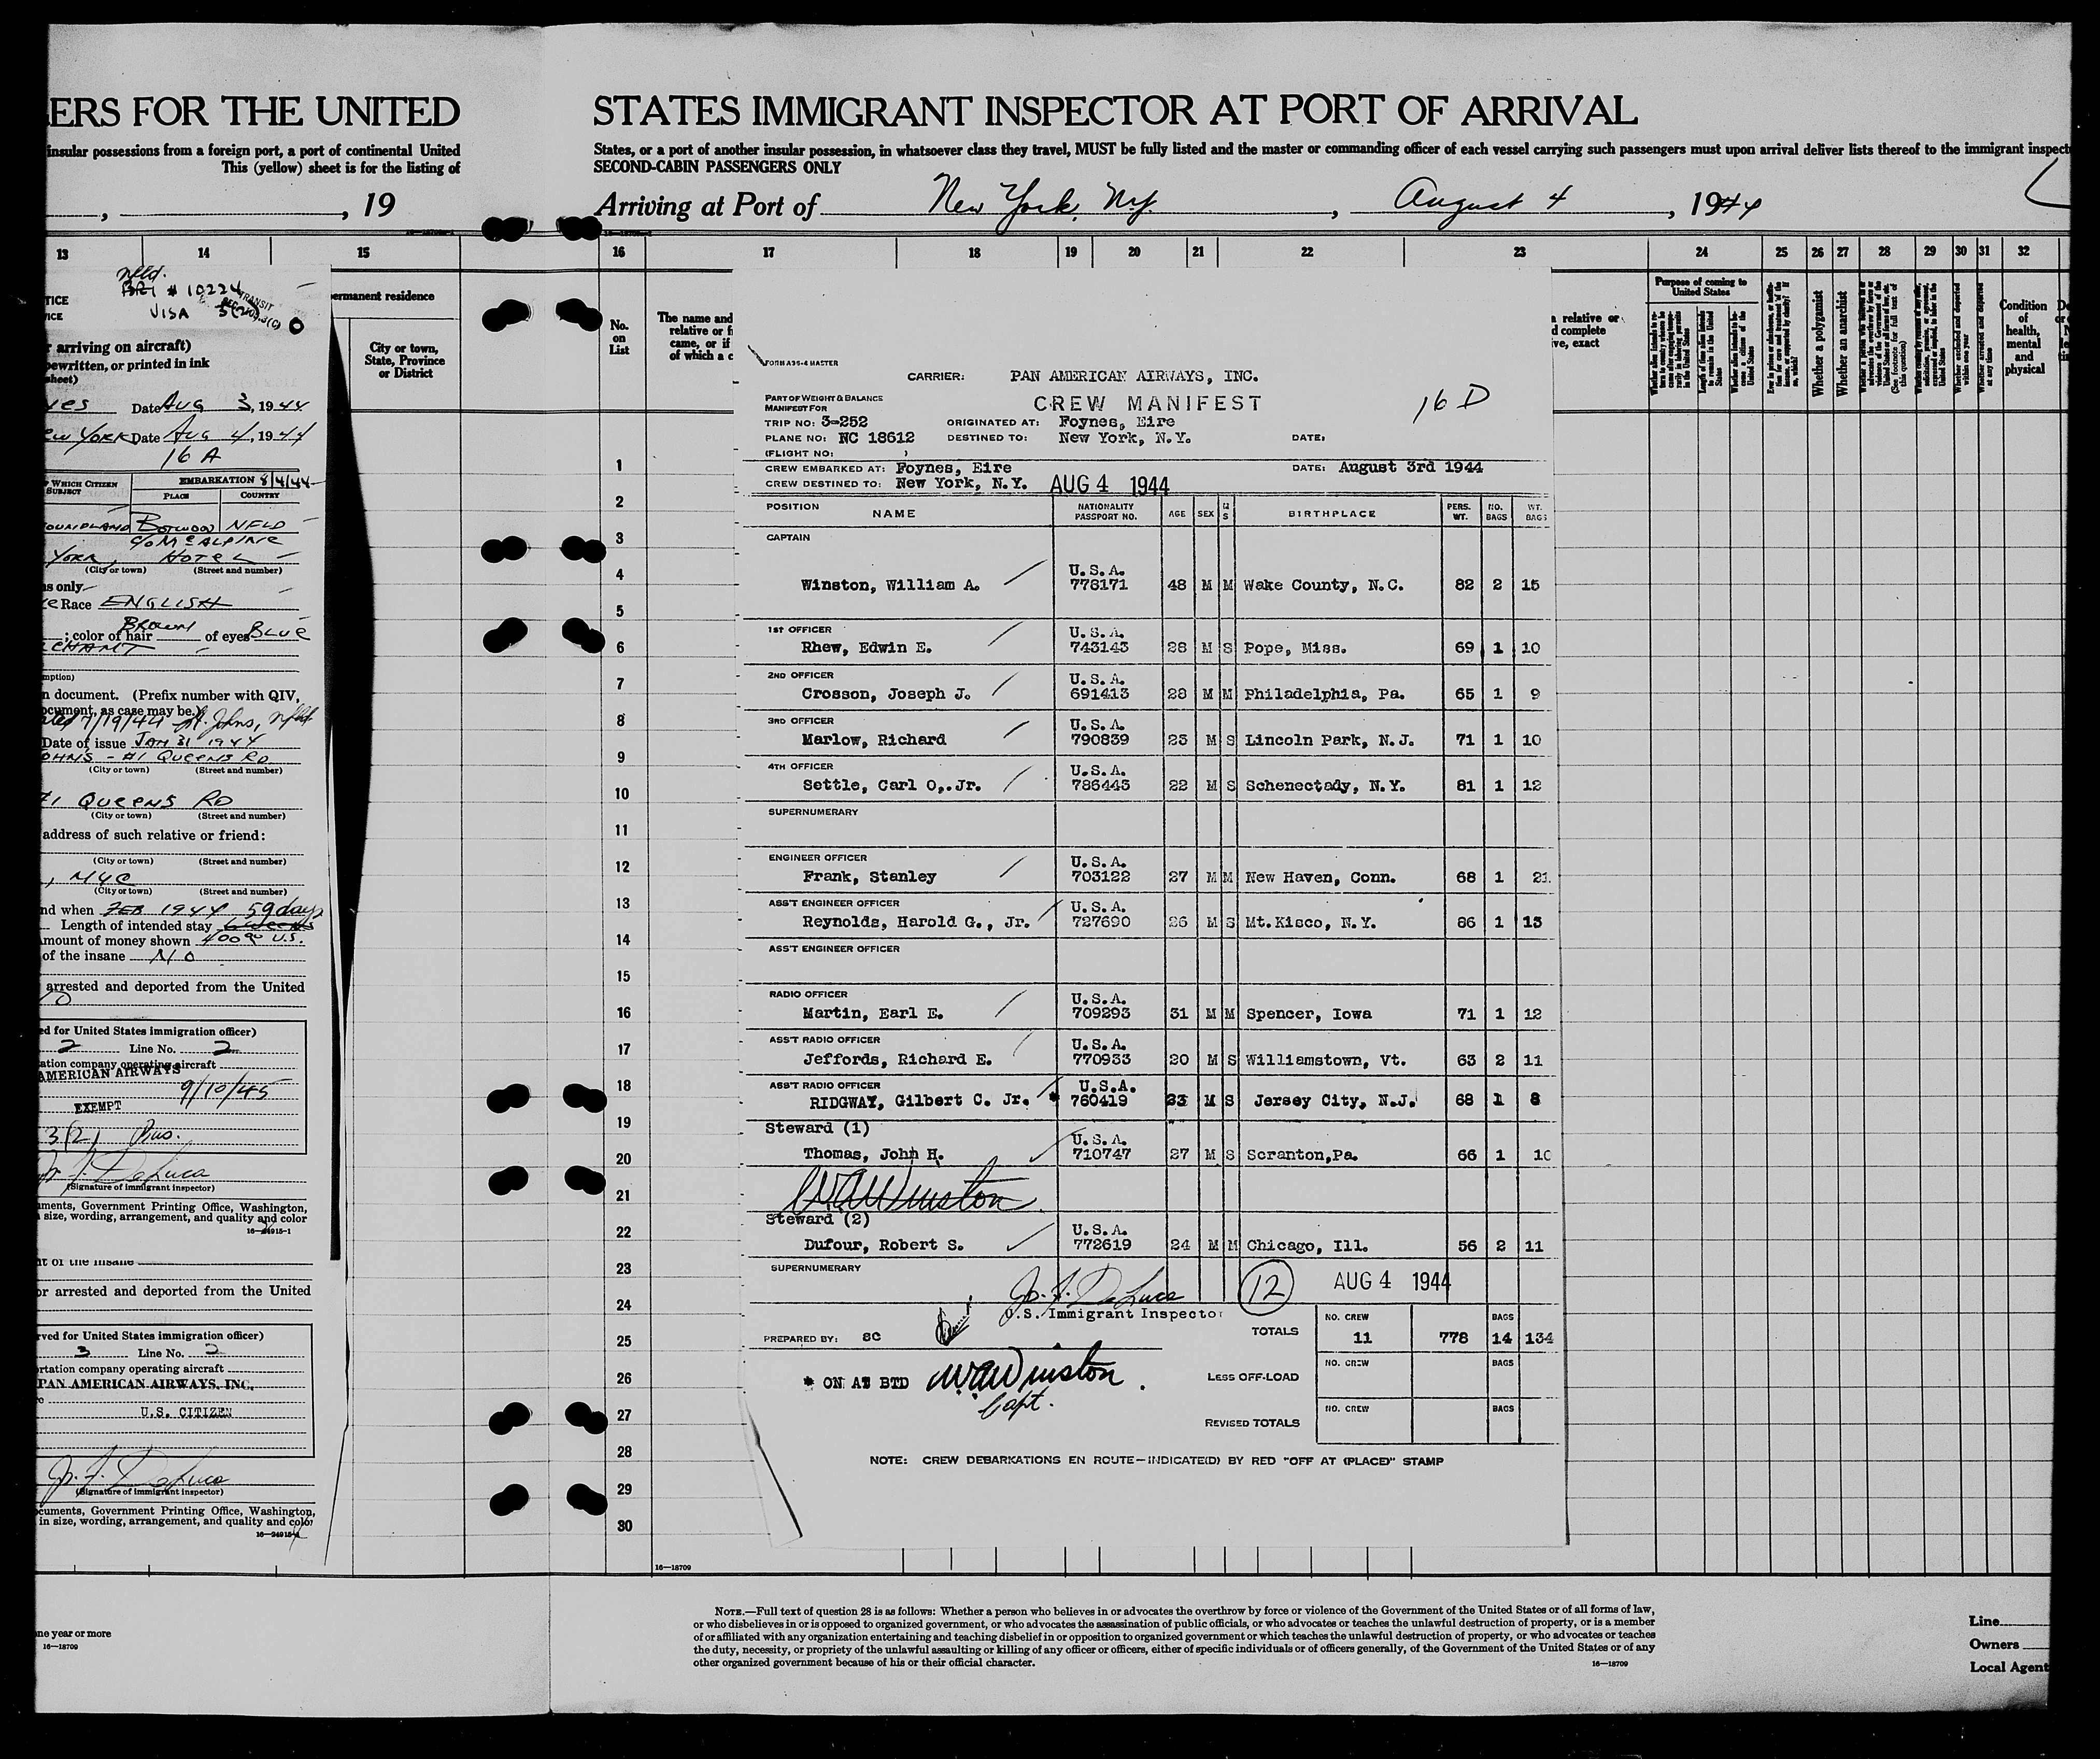 ERS FOR THE UNITED
insular possessions from a foreign port, a port of continental United
This (yellow) sheet is for the listing of
, , 19
STATES IMMIGRANT INSPECTOR AT PORT OF ARRIVAL
States, or a port of another insular possession, in whatsoever class they travel, MUST be fully listed and the master or commanding officer of each vessel carrying such passengers must upon arrival deliver lists thereof to the immigrant inspect
SECOND-CABIN PASSENGERS ONLY
Arriving at Port of New York, N.Y. , August 4 , 1944
13 14 15
Nfld.
# 10224
VISA
TRANSIT
TICE
VICE
0
r arriving on aircraft)
pewritten, or printed in ink
sheet)
Date AUG 3, 1944
EW YORK Date AUG 4, 1944
16 A
WHICH CITIZEN
SUBJECT
EMBARKATION 8/4/44
PLACE COUNTRY
OUNDLAND BOTWOOD NFLD
C/O MCALPINE
YORK, HOTEL
(City or town) (Street and number)
ns only
Race ENGLISH
; color of hair BROWN of eyes BLUE
CHANT
mption)
n document. (Prefix number with QIV,
ocument, as case may be.)
7/19/44 St. Johns, Nfld
Date of issue JAN 31 1944
OHNS - #1 QUEENS RD
(City or town) (Street and number)
#1 QUEENS RD
(City or town) (Street and number)
address of such relative or friend:
(City or town) (Street and number)
, NYC
(City or town) (Street and number)
nd when FEB 1944 59 days
Length of intended stay
mount of money shown 400.00 U.S.
of the insane NO
arrested and deported from the United
ed for United States immigration officer)
2 Line No. 2
tation company operating aircraft
AMERICAN AIRWAYS
9/10/45
EXEMPT
3(2)
J. F. DeLuca
(Signature of immigrant inspector)
uments, Government Printing Office, Washington,
size, wording, arrangement, and quality and color
16—24915-1
nt of the insane
or arrested and deported from the United
rved for United States immigration officer)
3 Line No. 2
ortation company operating aircraft
PAN AMERICAN AIRWAYS, INC.
U.S. CITIZEN
J. F. DeLuca
(Signature of immigrant inspector)
cuments, Government Printing Office, Washington,
in size, wording, arrangement, and quality and color
16—24915-1
ne year or more
16—18709
ermanent residence
City or town,
State, Province
or District
16 17 18 19 20 21 22 23 24 25 26 27 28 29 30 31 32
No.
on
List
The name and
relative or f
came, or if
of which a c
relative or
d complete
ve, exact
Purpose of coming to
United States
Whether a polygamist
Whether an anarchist
Condition
of
health,
mental
and
physical
1
2
3
4
5
6
7
8
9
10
11
12
13
14
15
16
17
18
19
20
21
22
23
24
25
26
27
28
29
30
FORM A36-4 MASTER
CARRIER: PAN AMERICAN AIRWAYS, INC.
16 D
PART OF WEIGHT & BALANCE
MANIFEST FOR
CREW MANIFEST
TRIP NO: 3-252 ORIGINATED AT: Foynes, Eire
PLANE NO: NC 18612 DESTINED TO: New York, N.Y. DATE:
(FLIGHT NO: )
CREW EMBARKED AT: Foynes, Eire DATE: August 3rd 1944
CREW DESTINED TO: New York, N.Y. AUG 4 1944
POSITION NAME NATIONALITY PASSPORT NO. AGE SEX M S BIRTHPLACE PERS. WT. NO. BAGS WT. BAGS
CAPTAIN
U.S.A.
Winston, William A. 778171 48 M M Wake County, N.C. 82 2 15
1ST OFFICER U.S.A.
Rhew, Edwin E. 743143 28 M S Pope, Miss. 69 1 10
2ND OFFICER U.S.A.
Crosson, Joseph J. 691413 28 M M Philadelphia, Pa. 65 1 9
3RD OFFICER U.S.A.
Marlow, Richard 790839 23 M S Lincoln Park, N.J. 71 1 10
4TH OFFICER U.S.A.
Settle, Carl O,.Jr. 786443 22 M S Schenectady, N.Y. 81 1 12
SUPERNUMERARY
ENGINEER OFFICER U.S.A.
Frank, Stanley 703122 27 M M New Haven, Conn. 68 1 21
ASS'T ENGINEER OFFICER U.S.A.
Reynolds, Harold G., Jr. 727690 26 M S Mt.Kisco, N.Y. 86 1 13
ASS'T ENGINEER OFFICER
RADIO OFFICER U.S.A.
Martin, Earl E. 709293 31 M M Spencer, Iowa 71 1 12
ASS'T RADIO OFFICER U.S.A.
Jeffords, Richard E. 770933 20 M S Williamstown, Vt. 63 2 11
ASS'T RADIO OFFICER U.S.A.
RIDGWAY, Gilbert C. Jr. * 760419 23 M S Jersey City, N.J. 68 1 8
Steward (1) U.S.A.
Thomas, John H. 710747 27 M S Scranton,Pa. 66 1 10
WAWinston
Steward (2) U.S.A.
Dufour, Robert S. 772619 24 M M Chicago, Ill. 56 2 11
SUPERNUMERARY
J. F. DeLuca 12 AUG 4 1944
U.S. Immigrant Inspector
PREPARED BY: SC
TOTALS NO. CREW 11 778 BAGS 14 134
LESS OFF-LOAD NO. CREW BAGS
* ON AT BTD WAWinston
Capt.
REVISED TOTALS NO. CREW BAGS
NOTE: CREW DEBARKATIONS EN ROUTE—INDICATE(D) BY RED "OFF AT (PLACE)" STAMP
16—18709
NOTE.—Full text of question 28 is as follows: Whether a person who believes in or advocates the overthrow by force or violence of the Government of the United States or of all forms of law,
or who disbelieves in or is opposed to organized government, or who advocates the assassination of public officials, or who advocates or teaches the unlawful destruction of property, or is a member
of or affiliated with any organization entertaining and teaching disbelief in or opposition to organized government or which teaches the unlawful destruction of property, or who advocates or teaches
the duty, necessity, or propriety of the unlawful assaulting or killing of any officer or officers, either of specific individuals or of officers generally, of the Government of the United States or of any
other organized government because of his or their official character.
16—18709
Line
Owners
Local Agent